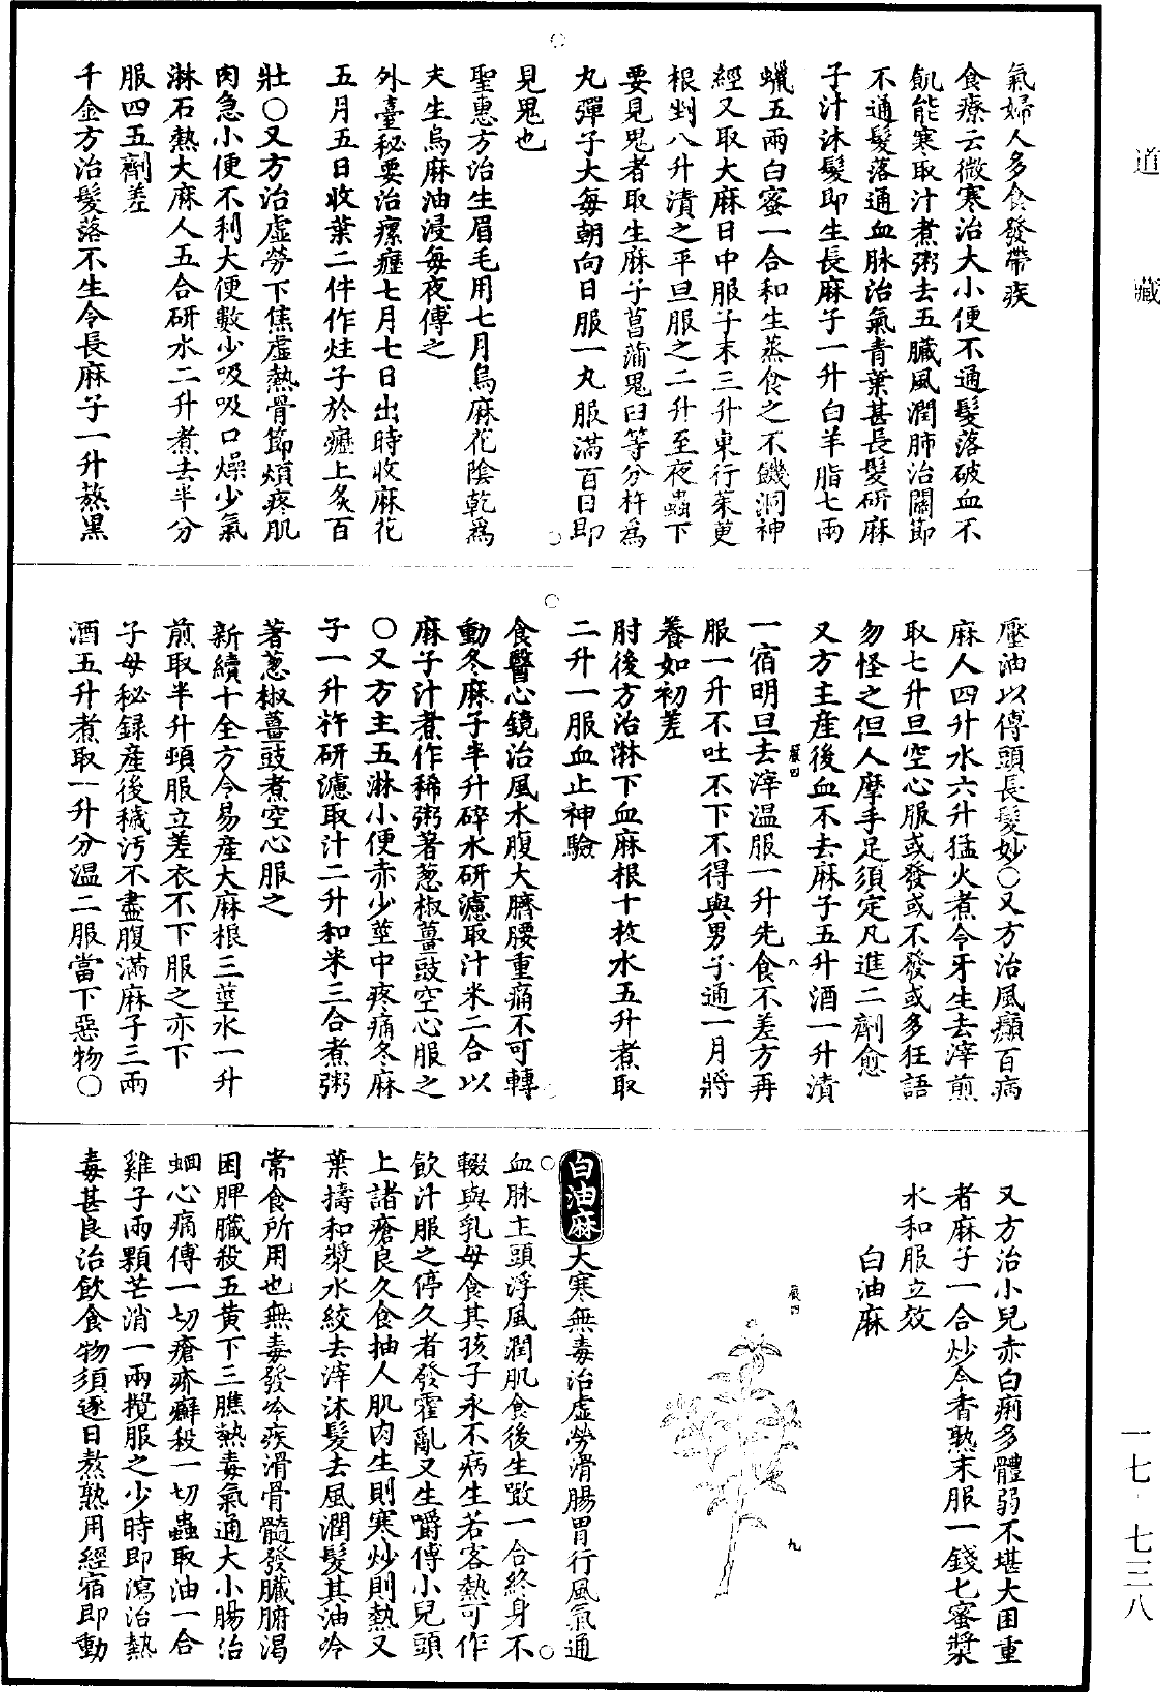 道藏
氣婦人多食發帶疾
食療云微寒治大小便不通髮落破血不
飢能寒取汁煮粥去五臟風潤肺治關節
不通髮落通血脉治氣青葉甚長髮研麻
子汁沐髮即生長麻子一升白羊脂七兩
蠟五兩白蜜一合和生蒸食之不饑洞神
經又取大麻日中服子末三升東行茱萸
根剉八升漬之平旦服之二升至夜蟲下
要見鬼者取生麻子菖蒲鬼臼等分杵爲
丸彈子大每朝向日服一丸服滿百日即
見鬼也
聖惠方治生眉毛用七月烏麻花陰乾爲
末生烏麻油浸每夜傅之
外臺秘要治瘰癧七月七日出時收麻花
五月五日收葉二件作炷子於癧上炙百
壯○又方治虛勞下焦虛熱骨節煩疼肌
肉急小便不利大便數少吸吸口燥少氣
淋石熱大麻人五合研水二升煮去半分
服四五劑差
千金方治髮落不生令長麻子一升熬黑
壓油以傅頭長髮妙○又方治風癲百病
麻人四升水六升猛火煮令牙生去滓煎
取七升旦空心服或發或不發或多狂語
勿怪之但人摩手足須定凡進二劑愈
又方主產後血不去麻子五升酒一升漬
一宿明旦去滓温服一升先食不差方再
服一升不吐不下不得與男子通一月將
養如初差
肘後方治淋下血麻根十枚水五升煮取
二升一服血止神驗
食醫心鏡治風水腹大臍腰重痛不可轉
動冬麻子半升碎水研濾取汁米二合以
麻子汁煮作稀粥著葱椒薑豉空心服之
○又方主五淋小便赤少莖中疼痛冬麻
子一升杵研濾取汁二升和米三合煮粥
著葱椒薑豉煮空心服之
新續十全方令易產大麻根三莖水一升
煎取半升頓服立差衣不下服之亦下
子母秘録產後穢汚不盡腹滿麻子三兩
酒五升煮取一升分温二服當下惡物○
又方治小兒赤白痢多體弱不堪大困重
者麻子一合炒令香熟末服一錢匕蜜漿
水和服立效
白油麻
白油麻大寒無毒治虛勞滑腸胃行風氣通
血脉主頭浮風潤肌食後生噉一合終身不
輟與乳母食其孩子永不病生若客熱可作
飲汁服之停久者發霍亂又生嚼傅小兒頭
上諸瘡良久食抽人肌肉生則寒炒則熱又
葉擣和漿水絞去滓沐髮去風潤髮其油冷
常食所用也無毒發冷疾滑骨髓發臟腑渴
困脾臟殺五黃下三膲熱毒氣通大小腸治
蛔心痛傅一切瘡疥癬殺一切蟲取油一合
雞子兩顆芒消一兩攪服之少時即瀉治熱
毒甚良治飲食物須逐日熬熟用經宿即動
一七·七三八